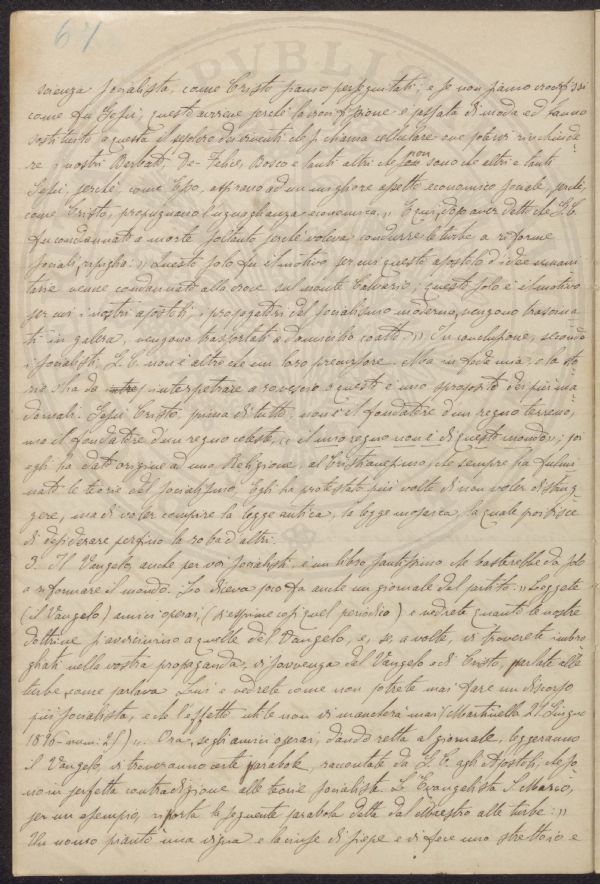 67
PVBLIC
scienza socialista, come Cristo siamo perseguitati; e se non siamo crocifissi
come fu Gesù, questo avviene perchè la crocifissione è passata di moda ed hanno
sostituito a questa il sepolcro dei viventi che si chiama cellulare ove poter rinchiude-
re i nostri Barbati, De-Felice, Bosco e tanti altri che non sono che altri e tanti
Gesù, perchè come Esso, aspirano ad un migliore assetto economico sociale, perchè
come Cristo, propugnano l'uguaglianza economica." E qui, dopo aver detto che G. C.
fu condannato a morte soltanto perchè voleva condurre le turbe a riforme
sociali, ripiglia: "Questo solo fu il motivo per cui questo apostolo d'idee umani-
tarie venne condannato alla croce sul monte Calvario; questo solo è il motivo
per cui i nostri apostoli, i propagatori del socialismo moderno, vengono trascina-
ti in galera, vengono trasportati a domicilio coatto." In conclusione, secondo
i socialisti, G. C. non è altro che un loro precursore. Ma in fede mia, o la sto-
ria s'ha da interpetrare a rovescio o questo è uno sproposito dei più ma-
dornale. Gesù Cristo, prima di tutto, non è il fondatore d'un regno terreno,
ma il fondatore d'un regno celeste, "il mio regno non è di questo mondo"; poi
egli ha dato origine ad una Religione, al Cristianesimo, che sempre ha fulmi-
nato le teorie del socialismo. Egli ha protestato più volte di non voler distrug-
gere, ma di voler compire la legge antica, la legge mosaica, la quale proibisce
di desiderare perfino la roba d'altri.
3. Il Vangelo, anche per voi socialisti, è un libro santissimo che basterebbe da solo
a riformare il mondo. Lo diceva poco fa anche un giornale del partito: "Leggete
(il Vangelo) amici operai, (s'esprime così quel periodico) e vedrete quanto le nostre
dottrine s'avvicinino a quelle del Vangelo, e, se, a volte, vi troverete imbro-
gliati nella vostra propaganda, vi sovvenga del Vangelo e di Cristo, parlate alle
turbe come parlava Lui e vedrete come non potrete mai fare un discorso
più socialista, e che l'effetto utile non vi mancherà mai (Martinella 21 Giugno
1896 - num. 25)". Ora, se gli amici operai, dando retta al giornale, leggeranno
il Vangelo, vi troveranno certe parabole, raccontate da G. C. agli Apostoli, che so-
no in perfetta contradizione alle teorie socialiste. L'Evangelista S. Marco,
per un esempio, riporta la seguente parabola detta dal Maestro alle turbe: "
Un uomo piantò una vigna e la cinse di siepe e vi fece uno strettoio e